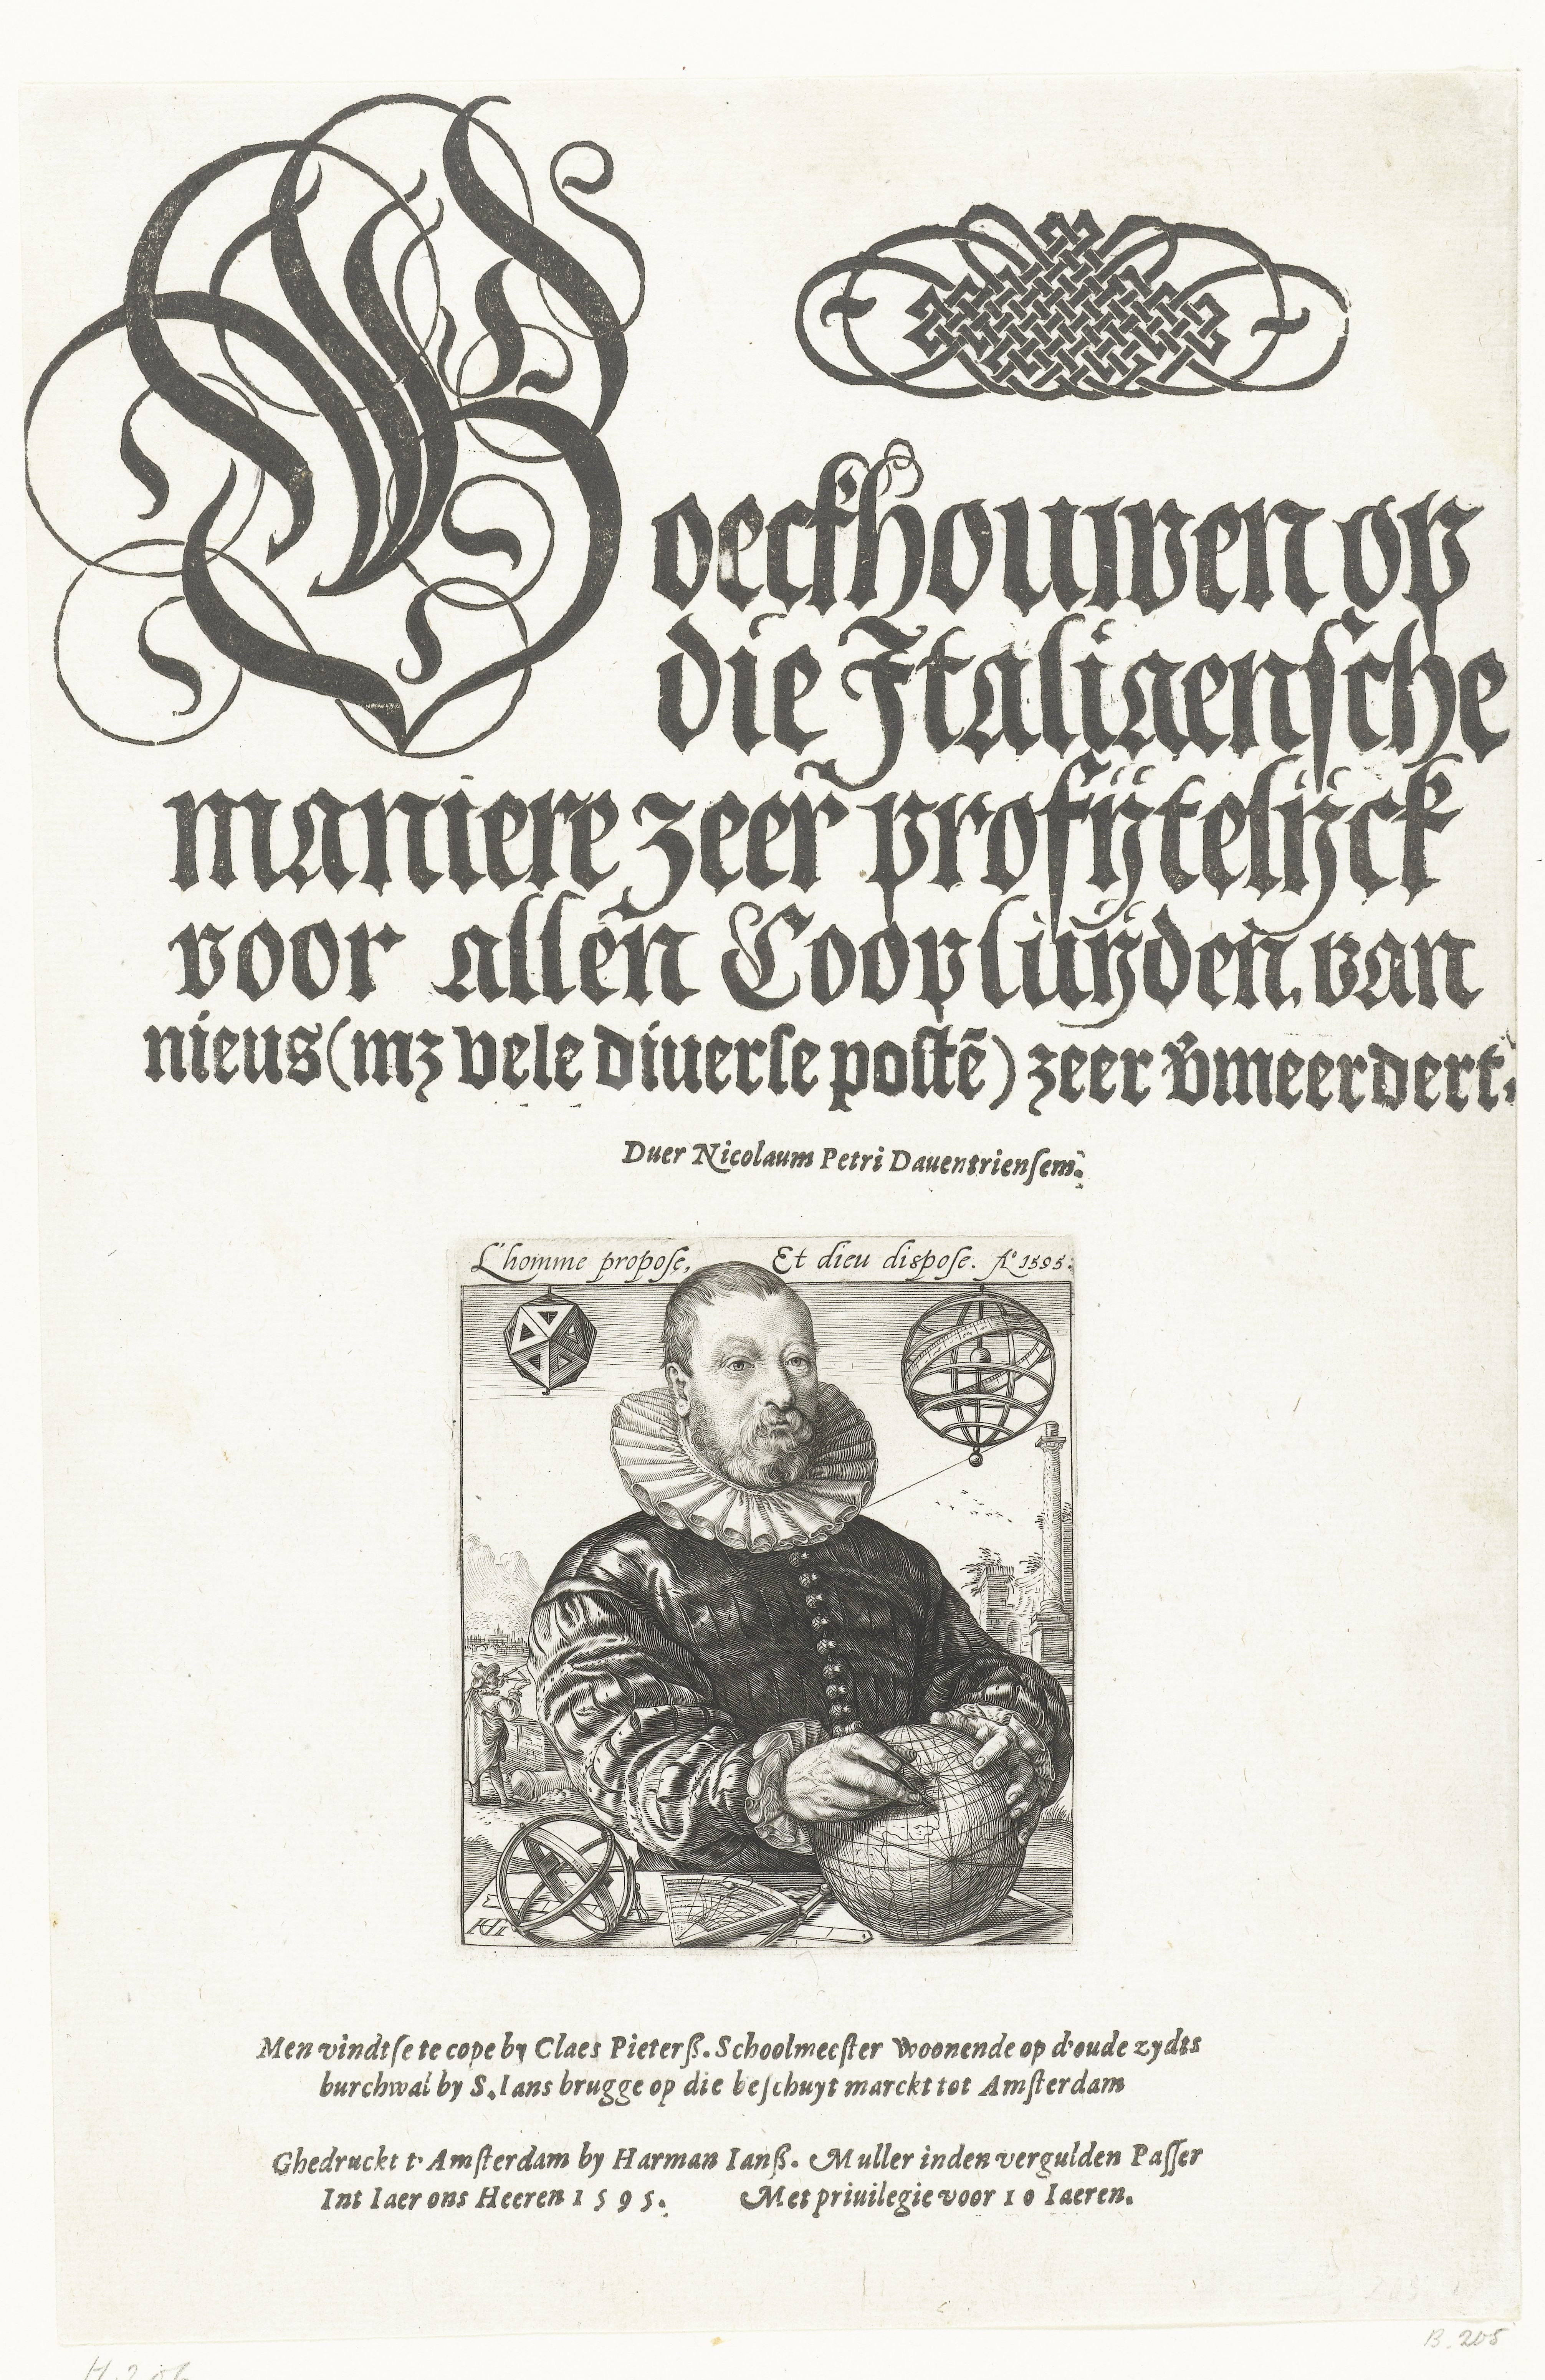 Boeckhouwen op
die Italiaensche
maniere zeer profijtelijck
voor allen Coopluÿden, van
nieus (mz vele diuerse postē) zeer v̄meerdert.
Duer Nicolaum Petri Dauentriensem.
L'homme propose, Et dieu dispose. A° 1595.
HG
Men vindtse te cope by Claes Pieterß. Schoolmeester Woonende op d'oude zydts
burchwal by S. Ians brugge op die beschuyt marckt tot Amsterdam
Ghedruckt t' Amsterdam by Harman Ianß. Muller inden vergulden Passer
Int Iaer ons Heeren 1595. Met priuilegie voor 10 Iaeren.
B. 205
H. 206